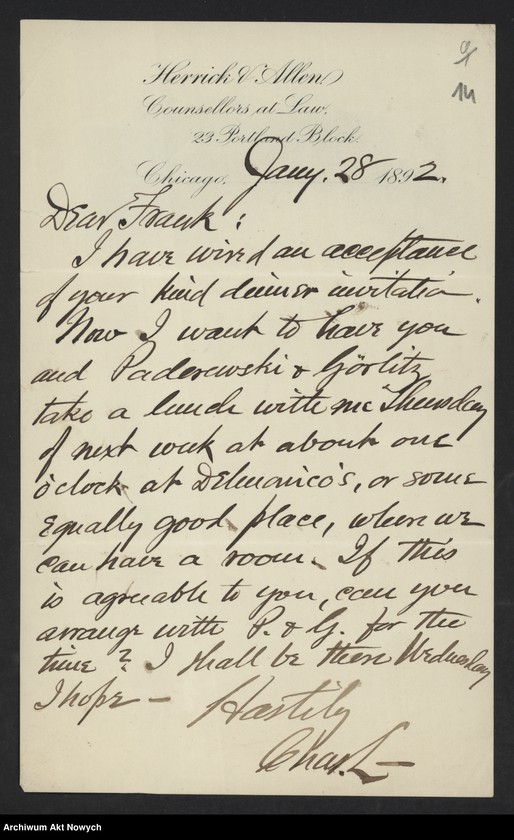 Herrick & Allen
Counsellors at Law,
23 Portland Block.
Chicago, Jany. 28 1892.
14
Dear Frank:
I have wired an acceptance
of your kind dinner invitation.
Now I want to have you
and Paderewski & Görlitz
take a lunch with me Thursday
of next week at about one
o'clock at Delmonico's, or some
equally good place, where we
can have a room. If this
is agreeable to you, can you
arrange with P. & G. for the
time? I shall be there Wednesday
I hope —
Hastily
Chas.
Archiwum Akt Nowych